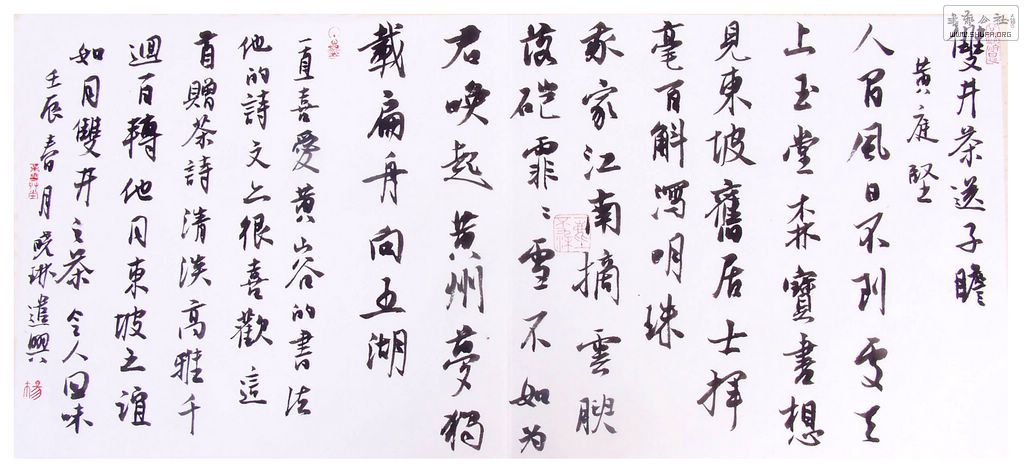 雙井茶送子瞻
黃庭堅
人間風日不到處天
上玉堂森寶書想
見東坡舊居士揮
毫百斛瀉明珠
我家江南摘雲腴
落硙霏〻雪不如为
君喚起黃州夢獨
載扁舟向五湖
一直喜愛黃山谷的書法
他的詩文亦很喜歡這
首贈茶詩清淡高雅千
迴百轉他同東坡之誼
如同雙井之茶令人回味
壬辰春月曉琳遣興
楊
WWW.SHUFA.ORG